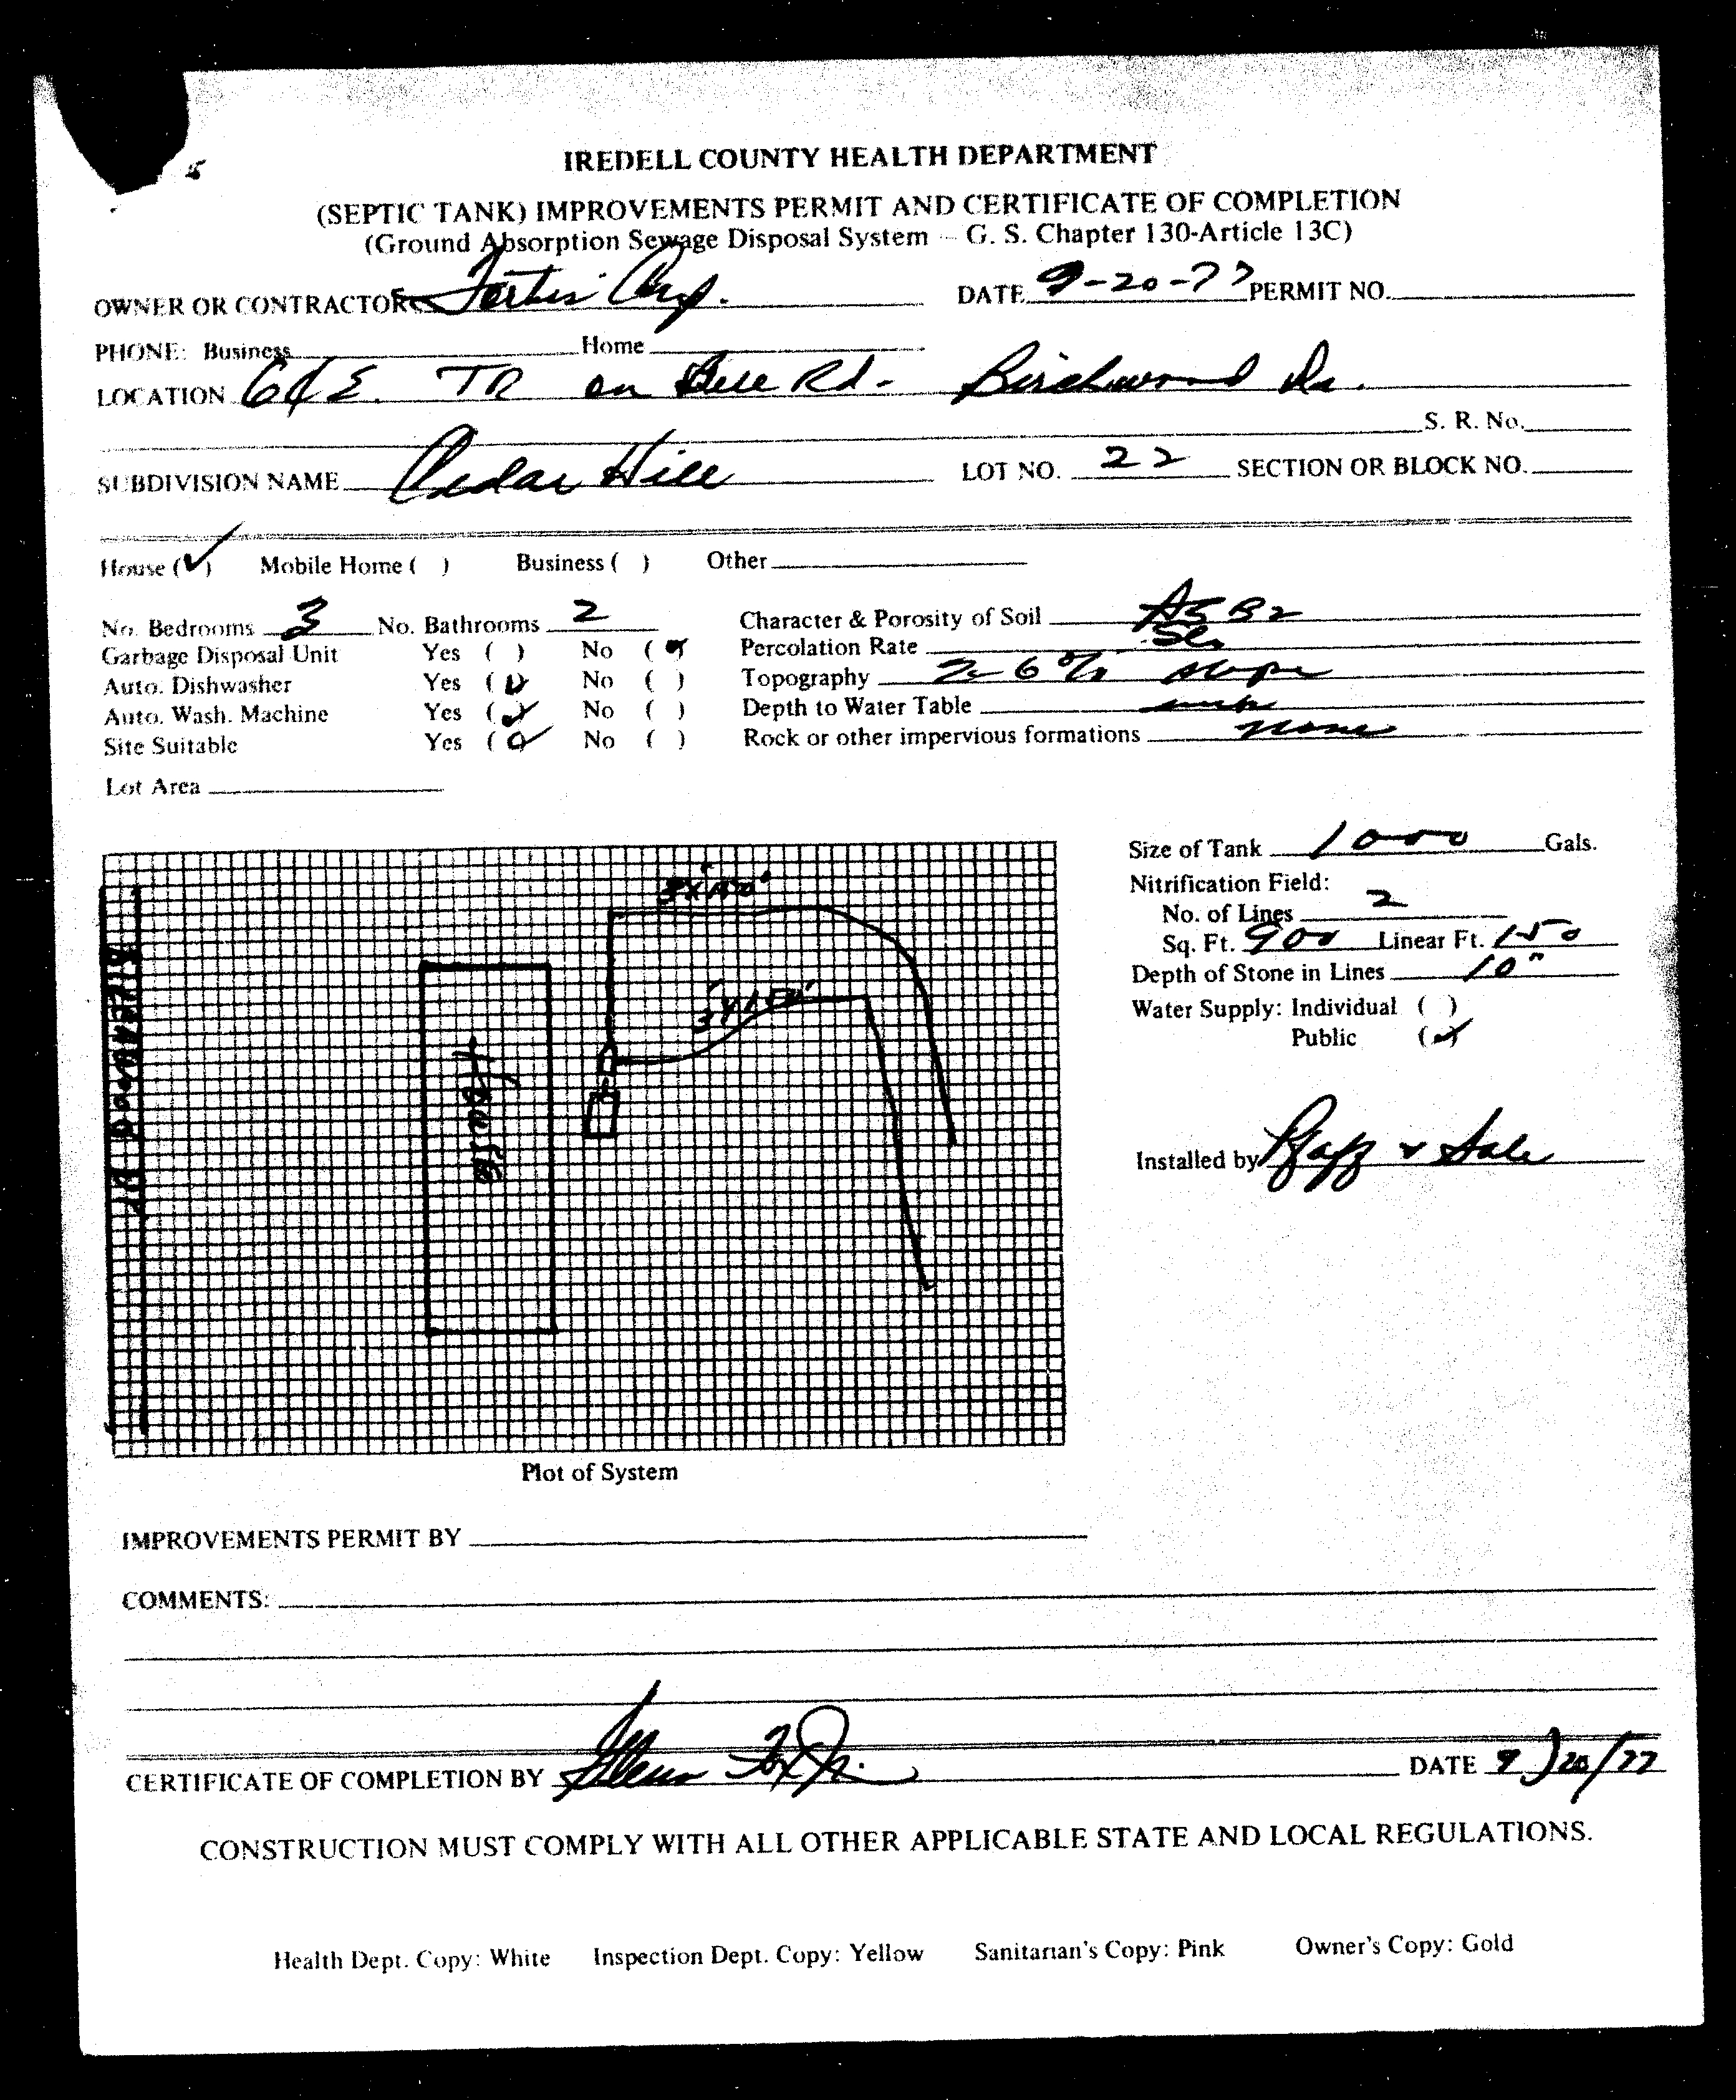 IREDELL COUNTY HEALTH DEPARTMENT
(SEPTIC TANK) IMPROVEMENTS PERMIT AND CERTIFICATE OF COMPLETION
(Ground Absorption Sewage Disposal System – G. S. Chapter 130-Article 13C)
OWNER OR CONTRACTOR Fortis Corp. DATE 9-20-77 PERMIT NO.
PHONE: Business Home
LOCATION 64 E. TR on Bell Rd - Birchwood Dr.
S. R. No.
SUBDIVISION NAME Cedar Hill LOT NO. 22 SECTION OR BLOCK NO.
House (✓) Mobile Home ( ) Business ( ) Other
No. Bedrooms 3 No. Bathrooms 2 Character & Porosity of Soil
Garbage Disposal Unit Yes ( ) No (✓) Percolation Rate
Auto. Dishwasher Yes (✓) No ( ) Topography 2-6% slope
Auto. Wash. Machine Yes (✓) No ( ) Depth to Water Table
Site Suitable Yes (✓) No ( ) Rock or other impervious formations none
Lot Area
Size of Tank 1000 Gals.
Nitrification Field:
No. of Lines 2
Sq. Ft. 900 Linear Ft. 150
Depth of Stone in Lines 10"
Water Supply: Individual ( )
Public (✓)
Installed by Pfaff & Sale
3' x 150'
3' x 150'
House
BIRCHWOOD DR
Plot of System
IMPROVEMENTS PERMIT BY
COMMENTS:
CERTIFICATE OF COMPLETION BY Glenn Fox Jr. DATE 9/20/77
CONSTRUCTION MUST COMPLY WITH ALL OTHER APPLICABLE STATE AND LOCAL REGULATIONS.
Health Dept. Copy: White Inspection Dept. Copy: Yellow Sanitarian's Copy: Pink Owner's Copy: Gold